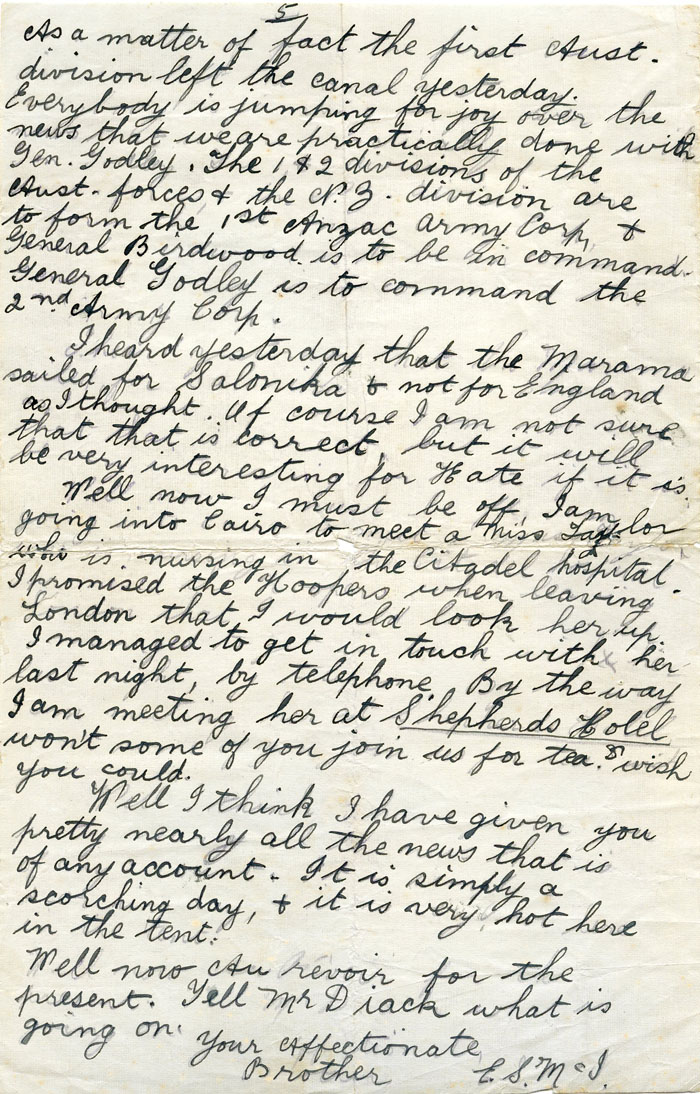 5
As a matter of fact the first Aust.
division left the canal yesterday.
Everybody is jumping for joy over the
news that we are practically done with
Gen. Godley. The 1 & 2 divisions of the
Aust. forces & the N.Z. division are
to form the 1st Anzac Army Corp, &
General Birdwood is to be in command.
General Godley is to command the
2nd Army Corp.
I heard yesterday that the Marama
sailed for Salonika & not for England
as I thought. Of course I am not sure
that that is correct, but it will
be very interesting for Kate if it is.
Well now I must be off, I am
going into Cairo to meet a Miss Taylor
who is nursing in the Citadel hospital.
I promised the Hoopers when leaving
London that I would look her up.
I managed to get in touch with her
last night, by telephone. By the way
I am meeting her at Shepherds Hotel
won't some of you join us for tea. I wish
you could.
Well I think I have given you
pretty nearly all the news that is
of any account. It is simply a
scorching day, & it is very hot here
in the tent.
Well now Au revoir for the
present. Tell Mr Diack what is
going on.
Your Affectionate
Brother E.S.McI.